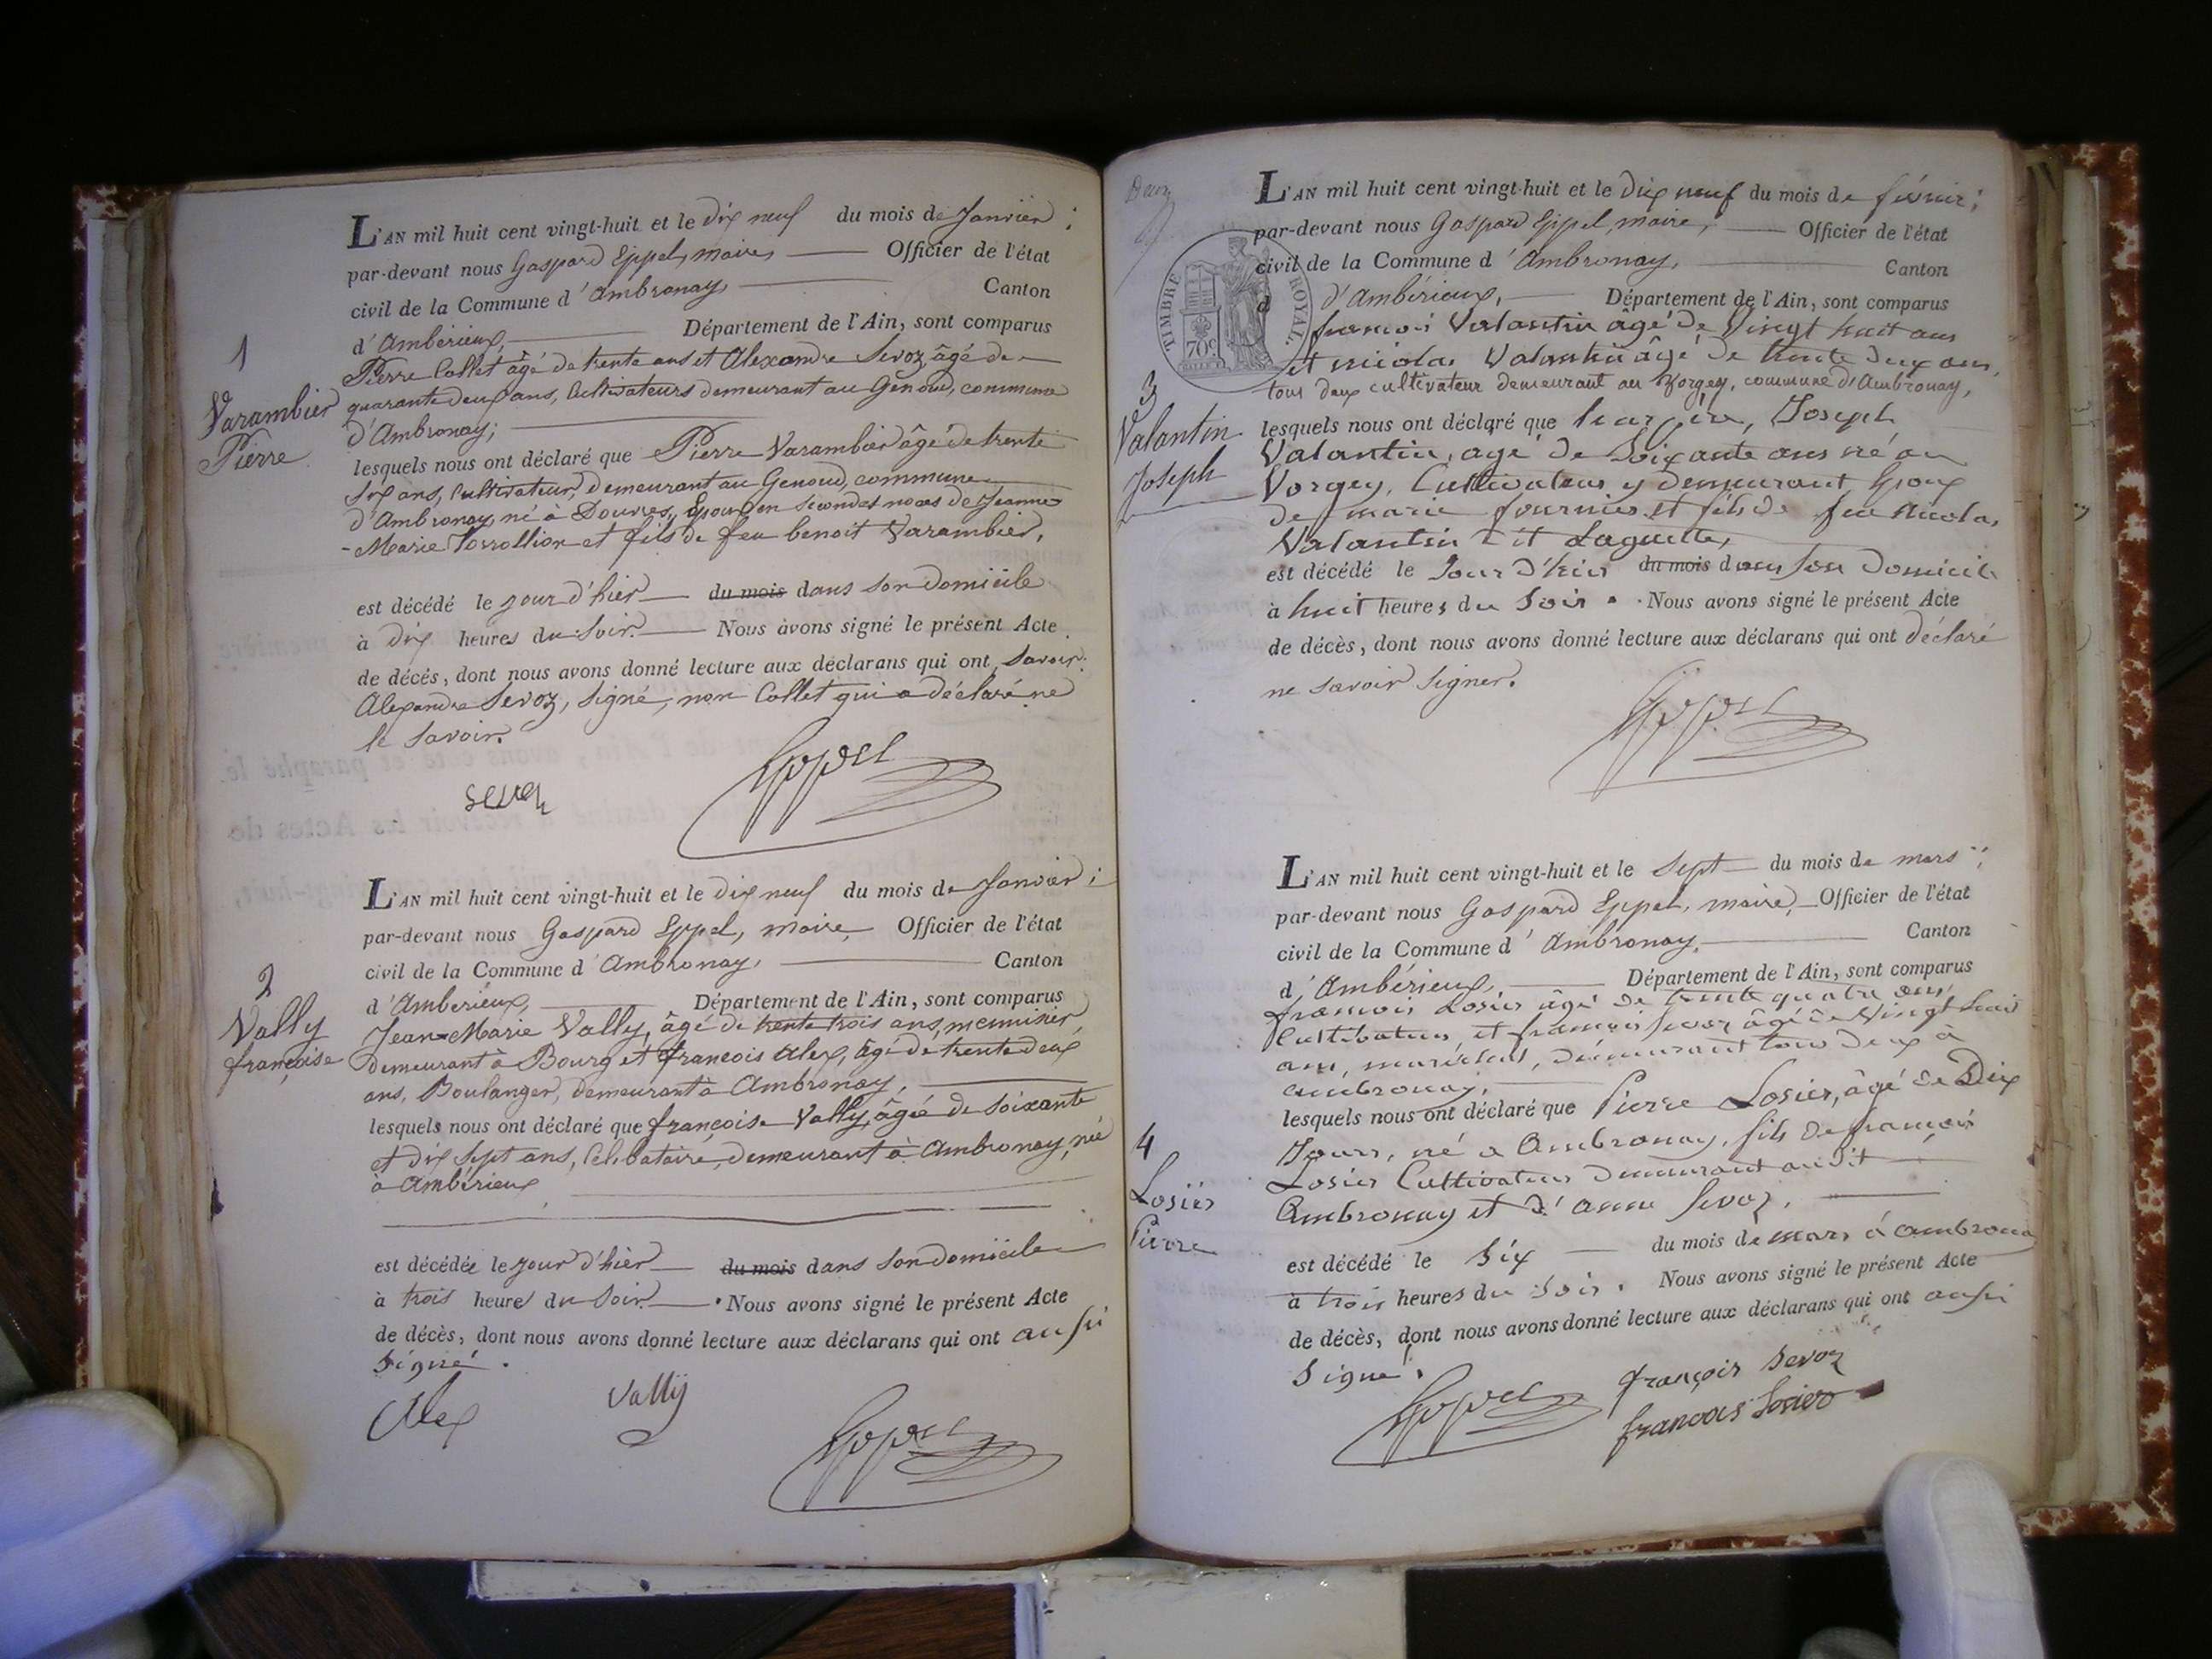 1
Varambier
Pierre
L'AN mil huit cent vingt-huit et le dix neuf du mois de Janvier ;
par-devant nous Gaspard Eppel, maire, Officier de l'état
civil de la Commune d'Ambronay, Canton
d'Ambérieux, Département de l'Ain, sont comparus
Pierre Collet âgé de trente ans et Alexandre Sevoz âgé de
quarante deux ans, Cultivateurs demeurant au Genoud, commune
d'Ambronay;
lesquels nous ont déclaré que Pierre Varambier âgé de trente
six ans, Cultivateur, demeurant au Genoud, commune
d'Ambronay, né à Douvres, Epoux en secondes noces de Jeanne
-Marie et fils de feu benoit Varambier,
est décédé le jour d'hier du mois dans son domicile
à dix heures du soir. Nous avons signé le présent Acte
de décès, dont nous avons donné lecture aux déclarans qui ont, savoir:
Alexandre Sevoz, signé, non Collet qui a déclaré ne
le savoir.
Eppel
2
Vally
françoise
L'AN mil huit cent vingt-huit et le dix neuf du mois de Janvier ;
par-devant nous Gaspard Eppel, maire, Officier de l'état
civil de la Commune d'Ambronay, Canton
d'Ambérieux, Département de l'Ain, sont comparus
Jean-Marie Vally, âgé de trente trois ans, menuisier,
demeurant à Bourg et françois Alex, âgé de trente deux
ans, Boulanger, demeurant à Ambronay,
lesquels nous ont déclaré que françoise Vally, âgée de soixante
et dix sept ans, Célibataire, demeurant à Ambronay, née
à Ambérieux
est décédée le jour d'hier du mois dans son domicile
à trois heures du soir. Nous avons signé le présent Acte
de décès, dont nous avons donné lecture aux déclarans qui ont aussi
signé.
Alex Vally
Eppel
TIMBRE ROYAL.
70c
3
Valantin
Joseph
L'AN mil huit cent vingt-huit et le dix neuf du mois de février ;
par-devant nous Gaspard Eppel, maire, Officier de l'état
civil de la Commune d'Ambronay, Canton
d d'Ambérieux, Département de l'Ain, sont comparus
françois Valantin âgé de vingt huit ans
et nicolas Valantin âgé de trente deux ans,
tous deux cultivateur demeurant au Vorgey, commune d'Ambronay,
lesquels nous ont déclaré que leur père, Joseph
Valantin, agé de soixante ans né au
Vorgey, Cultivateur y demeurant, Epoux
de marie fournier et fils de feu Nicolas
Valantin dit Laguette,
est décédé le Jour d'hier du mois dans son Domicile
à huit heures du soir. Nous avons signé le présent Acte
de décès, dont nous avons donné lecture aux déclarans qui ont déclaré
ne savoir signer.
Eppel
4
Losier
Pierre
L'AN mil huit cent vingt-huit et le sept du mois de mars ;
par-devant nous Gaspard Eppel, maire, Officier de l'état
civil de la Commune d'Ambronay, Canton
d'Ambérieux, Département de l'Ain, sont comparus
françois Losier âgé de trente quatre ans,
Cultivateur, et françois Sevoz âgé de vingt huit
ans, maréchal, demeurant tous deux à
ambronay,
lesquels nous ont déclaré que Pierre Losier, âgé de Dix
Jours, né à Ambronay, fils de françois
Losier Cultivateur demeurant audit
Ambronay et d'anne Sevoz,
est décédé le six du mois de mars à ambronay
à trois heures du soir. Nous avons signé le présent Acte
de décès, dont nous avons donné lecture aux déclarans qui ont aussi
signé.
Eppel françois Sevoz
francois Losier